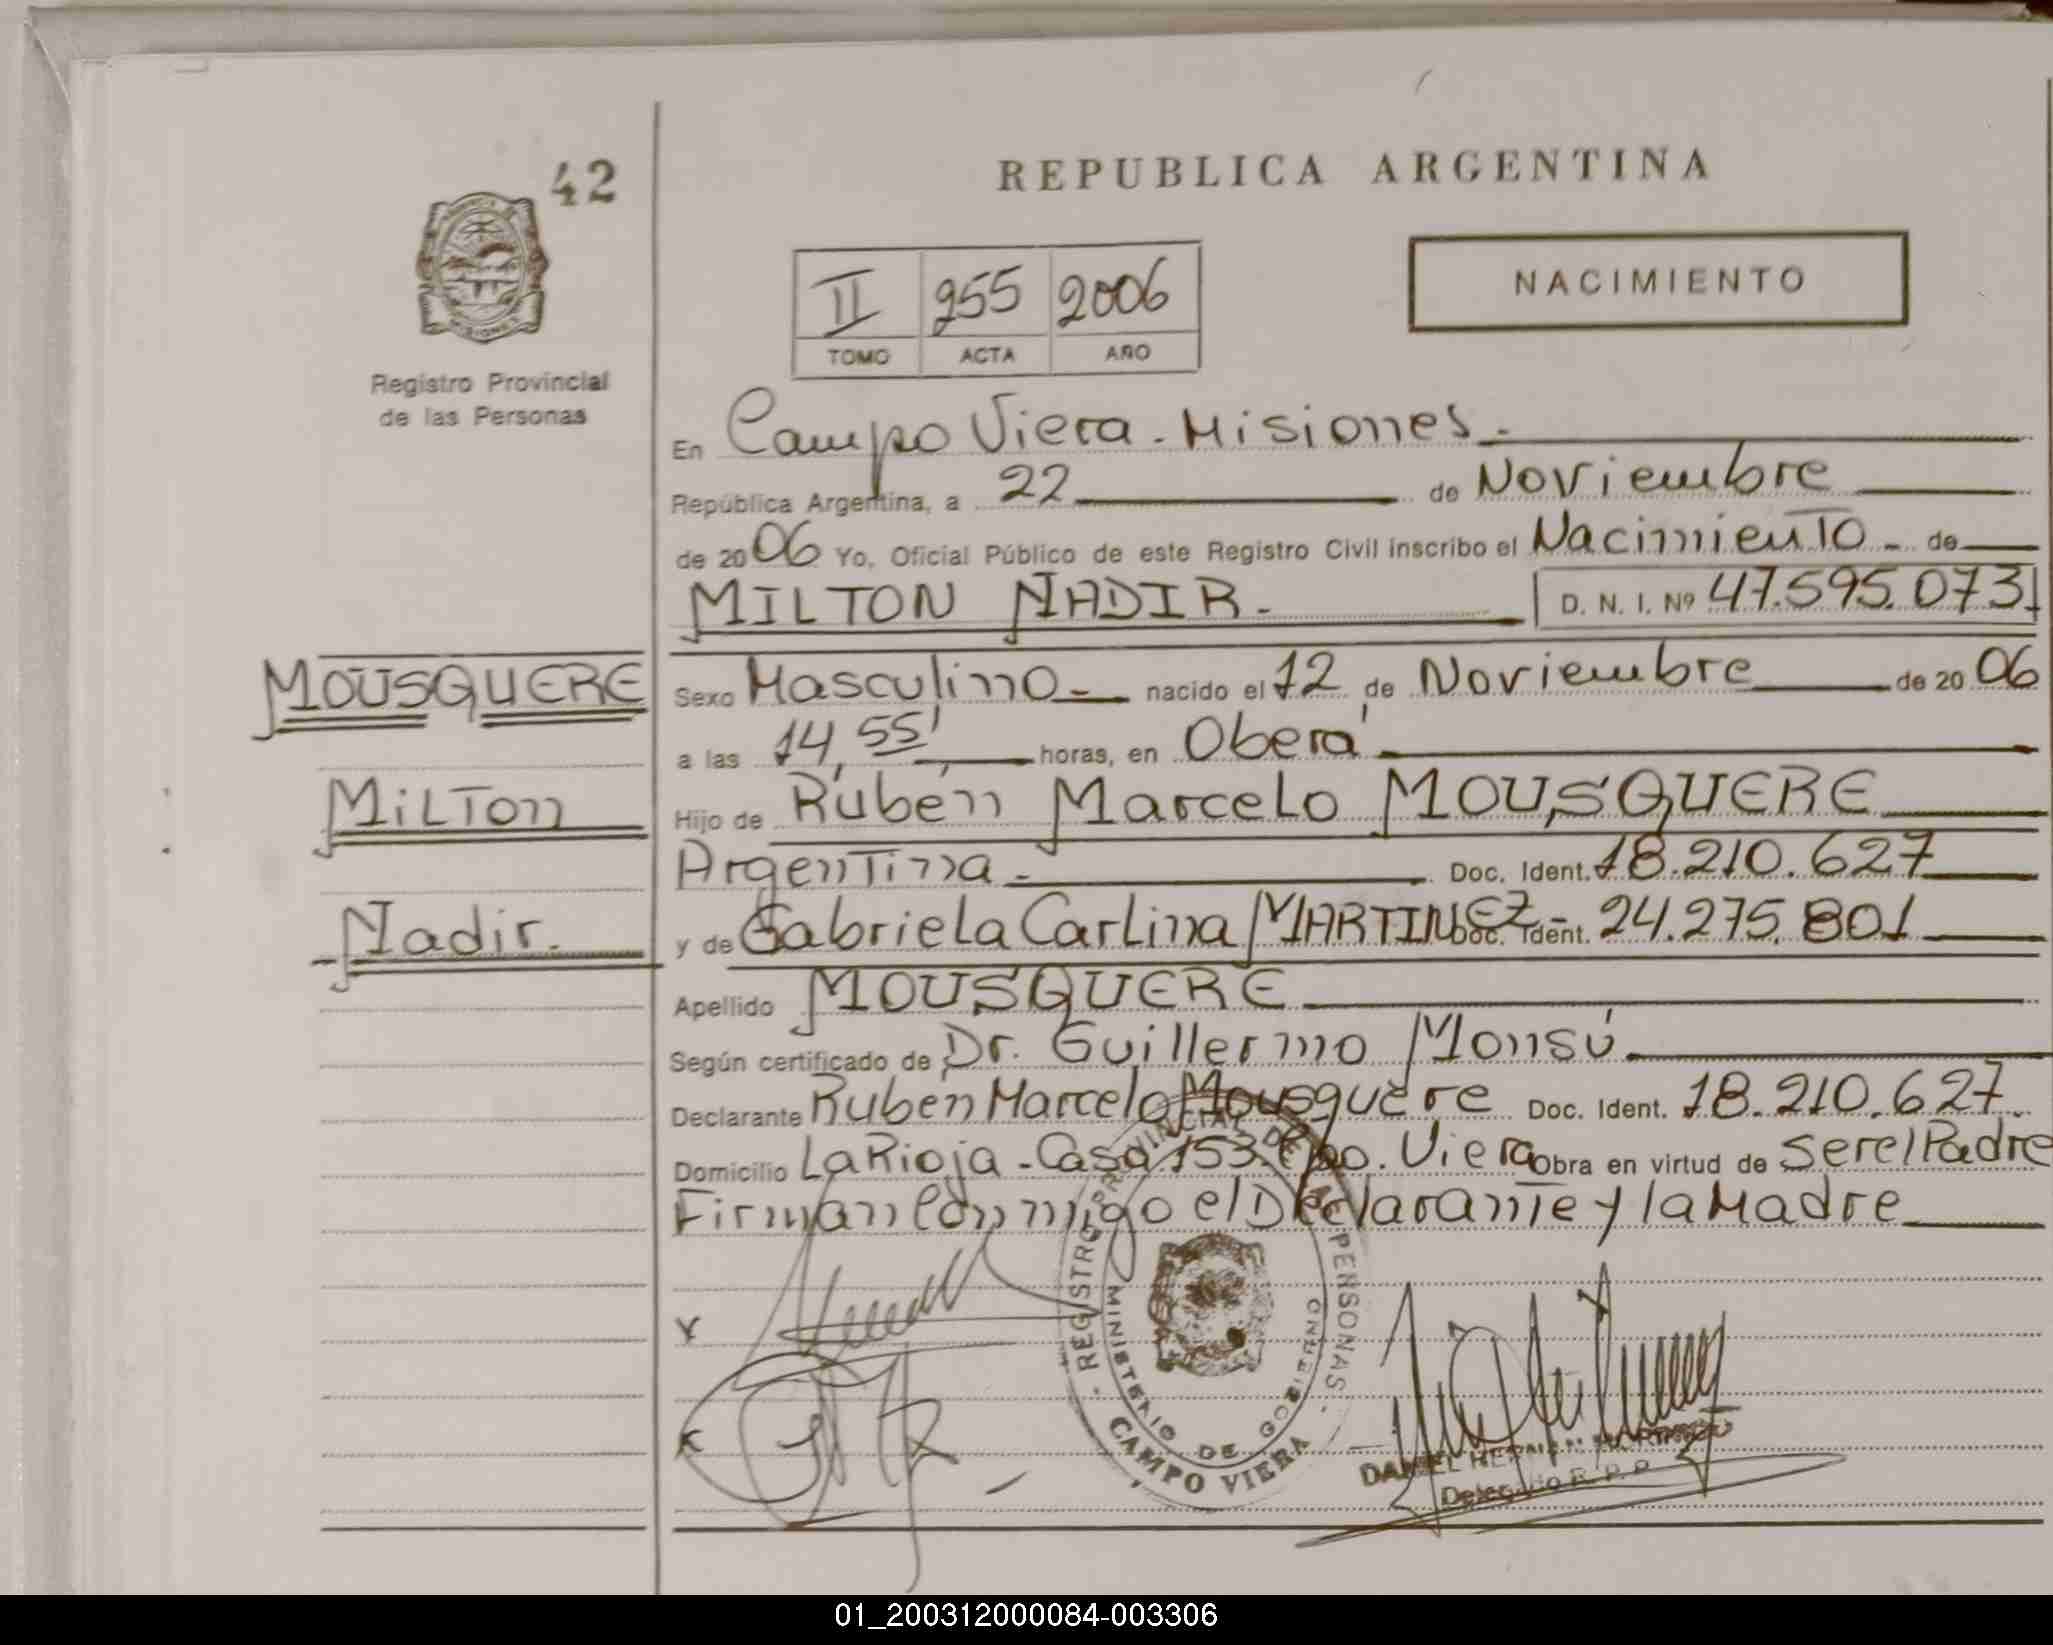 42
REPUBLICA ARGENTINA
NACIMIENTO
II 255 2006
TOMO ACTA AÑO
Registro Provincial
de las Personas
En Campo Viera - Misiones -
República Argentina, a 22 de Noviembre
de 2006 Yo, Oficial Público de este Registro Civil inscribo el Nacimiento - de
MILTON NADIR - D. N. I. Nº 47.595.073
MOUSQUERE
Milton
Nadir.
Sexo Masculino - nacido el 12 de Noviembre de 2006
a las 14,55' horas, en Oberá
Hijo de Rubén Marcelo MOUSQUERE
Argentina - Doc. Ident. 18.210.627
y de Gabriela Carlina MARTINEZ - Doc. Ident. 24.275.801
Apellido MOUSQUERE
Según certificado de Dr. Guillermo Monsú
Declarante Rubén Marcelo Mousquere Doc. Ident. 18.210.627.
Domicilio La Rioja - Casa 153 - Cpo. Viera Obra en virtud de ser el Padre
Firman conmigo el Declarante y la Madre
REGISTRO PROVINCIAL DE LAS PERSONAS
MINISTERIO DE GOBIERNO
CAMPO VIERA
DANIEL
Delegado R.P.P.
01_200312000084-003306